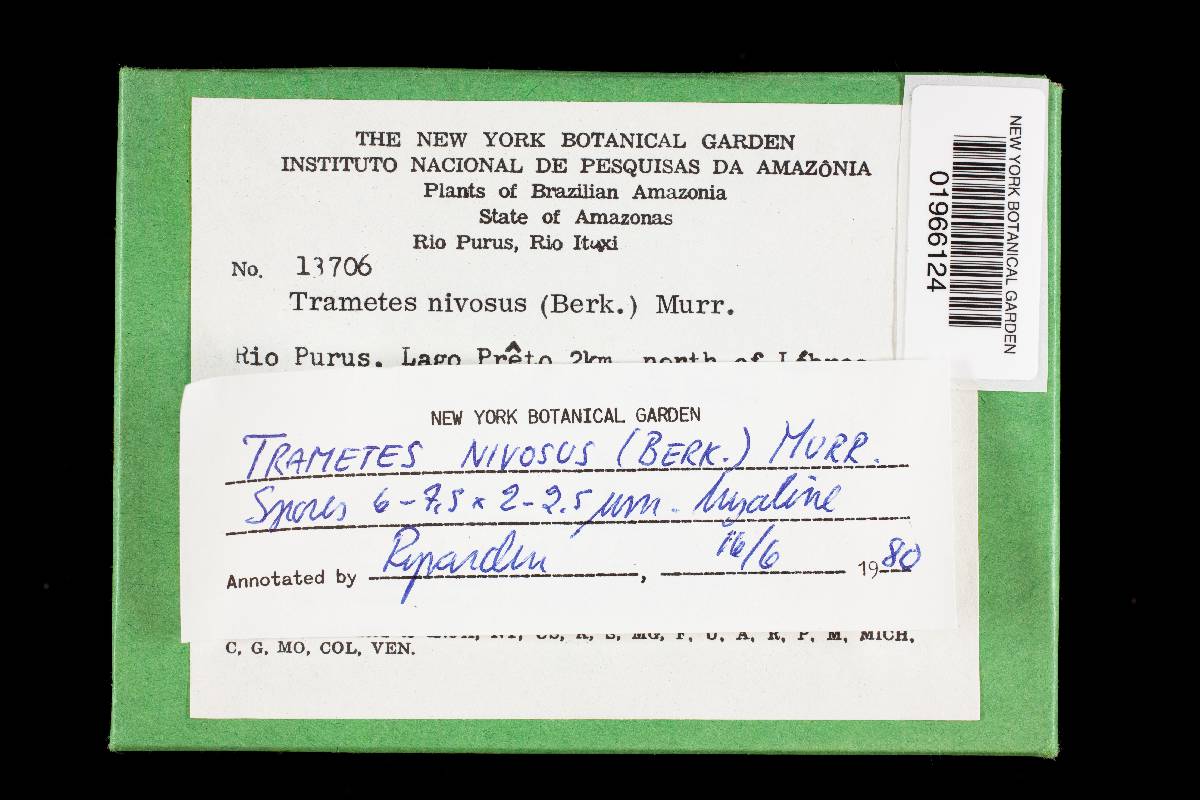 THE NEW YORK BOTANICAL GARDEN
INSTITUTO NACIONAL DE PESQUISAS DA AMAZÔNIA
Plants of Brazilian Amazonia
State of Amazonas
Rio Purus, Rio Ituxi
No. 13706
Trametes nivosus (Berk.) Murr.
Rio Purus, Lago Prêto 2km north of
NEW YORK BOTANICAL GARDEN
TRAMETES NIVOSUS (BERK.) MURR.
Spores 6-7.5 x 2-2.5 µm. hyaline
Annotated by Ryvarden, 16/6 1980
NY, US, K, S, MG, F, U, A, R, P, M, MICH,
C, G, MO, COL, VEN.
NEW YORK BOTANICAL GARDEN
01966124